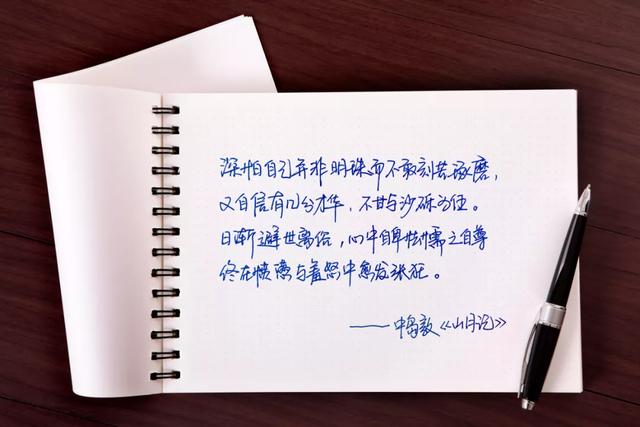 深怕自己并非明珠而不敢刻苦琢磨，
又自信有几分才华，不甘与沙砾为伍。
日渐避世离俗，心中自卑怯懦之自尊
终在愤懑与羞怒中愈发张狂。
——中岛敦《山月记》